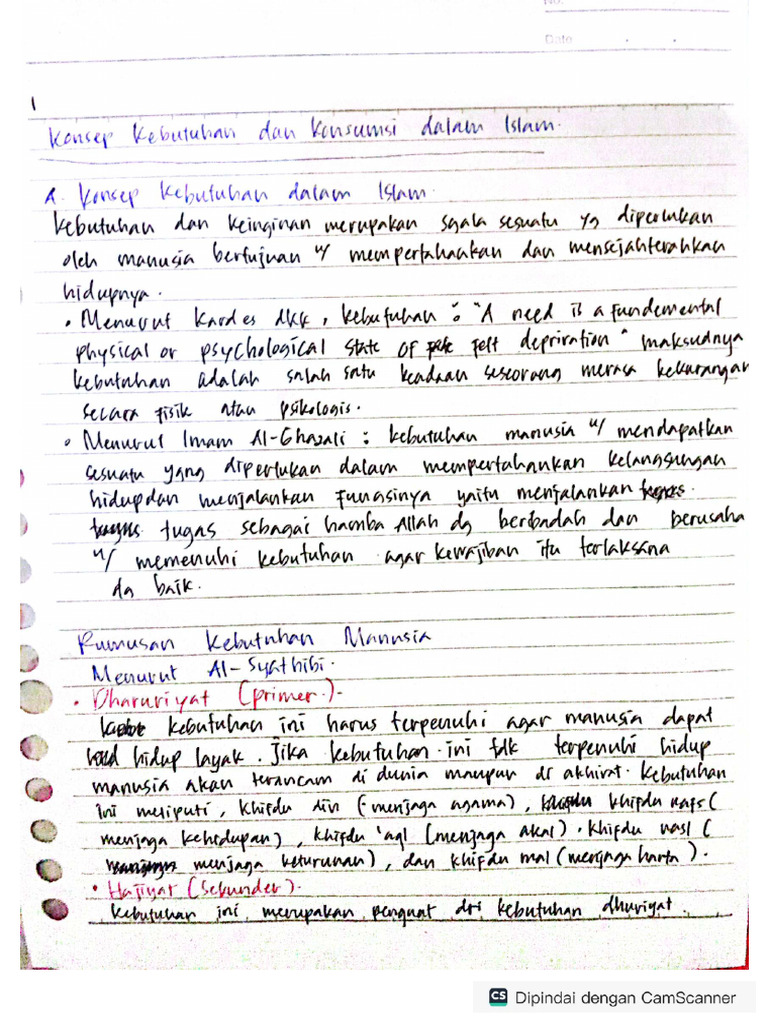 No.
Date
1
Konsep Kebutuhan dan Konsumsi dalam Islam.
A. Konsep Kebutuhan dalam Islam.
Kebutuhan dan Keinginan merupakan sgala sesuatu yg diperlukan
oleh manusia bertujuan u/ mempertahankan dan mensejahterahkan
hidupnya.
• Menurut Kardes dkk, kebutuhan : "A need is a fundemental
physical or psychological state of felt depriration" maksudnya
kebutuhan adalah salah satu keadaan seseorang merasa kekurangan
secara fisik atau psikologis.
• Menurut Imam Al-Ghazali : kebutuhan manusia u/ mendapatkan
sesuatu yang diperlukan dalam mempertahankan kelangsungan
hidup dan menjalankan fungsinya yaitu menjalankan tugas.
tugas tugas sebagai hamba Allah dg beribadah dan berusaha
u/ memenuhi kebutuhan agar kewajiban itu terlaksana
dg baik.
Rumusan Kebutuhan Manusia
Menurut Al-Syathibi.
• Dharuriyat (primer).
kebutuhan ini harus terpenuhi agar manusia dapat
hidup layak. Jika kebutuhan ini tdk terpenuhi hidup
manusia akan terancam di dunia maupun di akhirat. Kebutuhan
ini meliputi, khifdu din (menjaga agama), khifdu nafs (
menjaga kehidupan), khifdu 'aql (menjaga akal). khifdu nasl (
menjaga keturunan), dan khifdu mal (menjaga harta).
• Hajiyat (Sekunder).
Kebutuhan ini merupakan penguat dri kebutuhan dhuriyat.
CS Dipindai dengan CamScanner